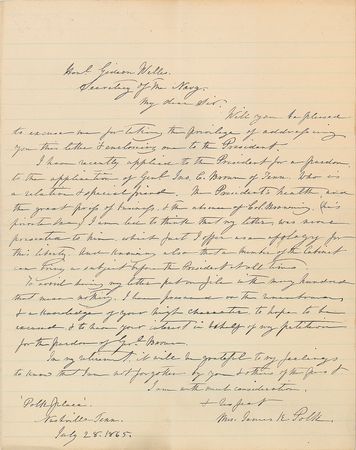 Honl Gideon Welles.
Secretary of the Navy.
My dear Sir.
Will you be pleased
to excuse me for taking the privilege of addressing
you this letter & enclosing one to the President.
I have recently applied to the President for a pardon
to the application of Genl Jno. C. Brown of Tenn. Who is
a relation & special friend. The President's health and
the great press of business, & the absence of Col. Browning (his
private Sec.) I am led to think that my letter was never
presented to him, which fact I offer as an apology for
this liberty. And knowing also that a member of the Cabinet
can bring a subject before the President at all times
To avoid having my letter put on file with many hundred
that mean nothing. I have presumed on the
& a knowledge of your high character to hope to be
excused & to have your interest in behalf of my petition
for the pardon of Genl Brown.
In my retirement, it will be grateful to my feelings
to know that I am not forgotten by you & others of the past
I am with much consideration.
& respect
Mrs. James K Polk.
Polk place.
Nashville Tenn.
July 28. 1865.